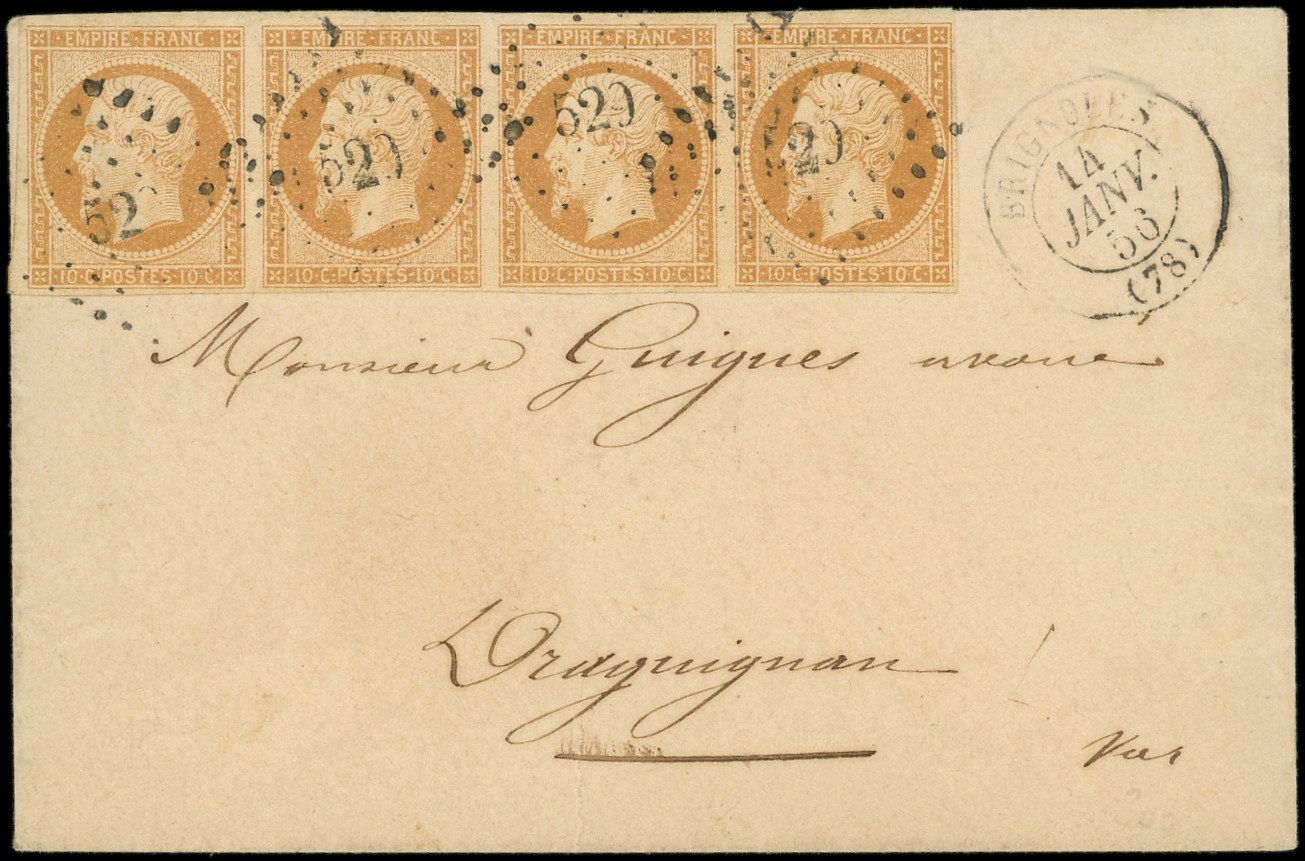 EMPIRE FRANC EMPIRE FRANC EMPIRE FRANC EMPIRE FRANC
52 520 520 520
10·C·POSTES·10·C 10·C·POSTES·10·C 10·C·POSTES·10·C 10·C·POSTES·10·C
BRIGNOLES
14
JANV.
56
(78)
Monsieur Guigues avoué
Draguignan
Var